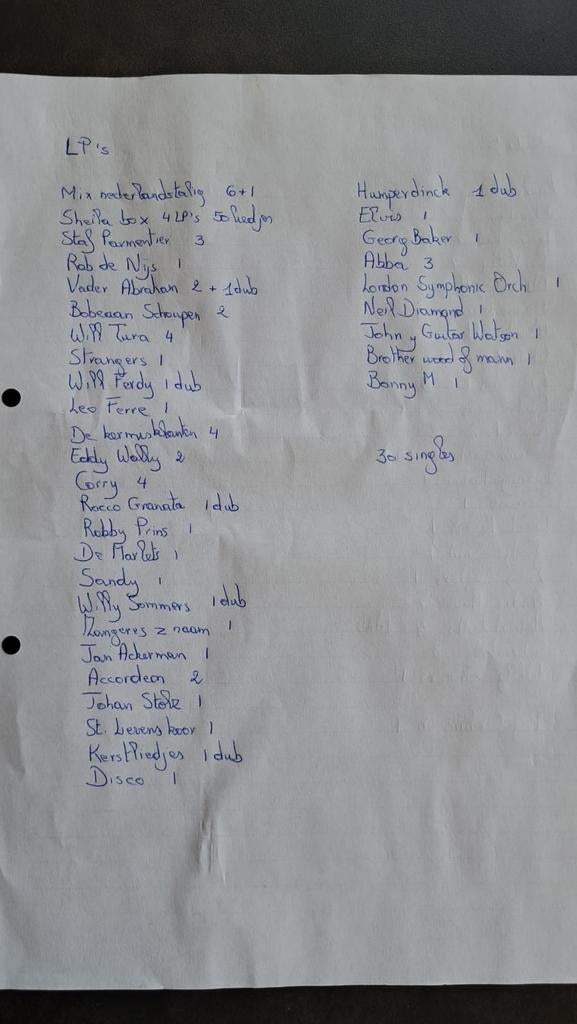 LP's
Mix nederlandstalig 6+1
Sheila box 4 LP's 50 liedjes
Staf Parmentier 3
Rob de Nijs 1
Vader Abraham 2 + 1 dub
Bobejaan Schoepen 2
Will Tura 4
Strangers 1
Will Ferdy 1 dub
Leo Ferre 1
De kermisklanten 4
Eddy Wally 2
Corry 4
Rocco Granata 1 dub
Robby Prins 1
De Marlets 1
Sandy 1
Willy Sommers 1 dub
Zangeres z naam 1
Jan Ackerman 1
Accordeon 2
Johan Stolz 1
St. Lievens koor 1
Kerstliedjes 1 dub
Disco 1
Humperdinck 1 dub
Elvis 1
Georg Baker 1
Abba 3
London Symphonic Orch 1
Neil Diamond 1
John y Guitar Watson 1
Brother wood of mann 1
Bonny M 1
30 singles